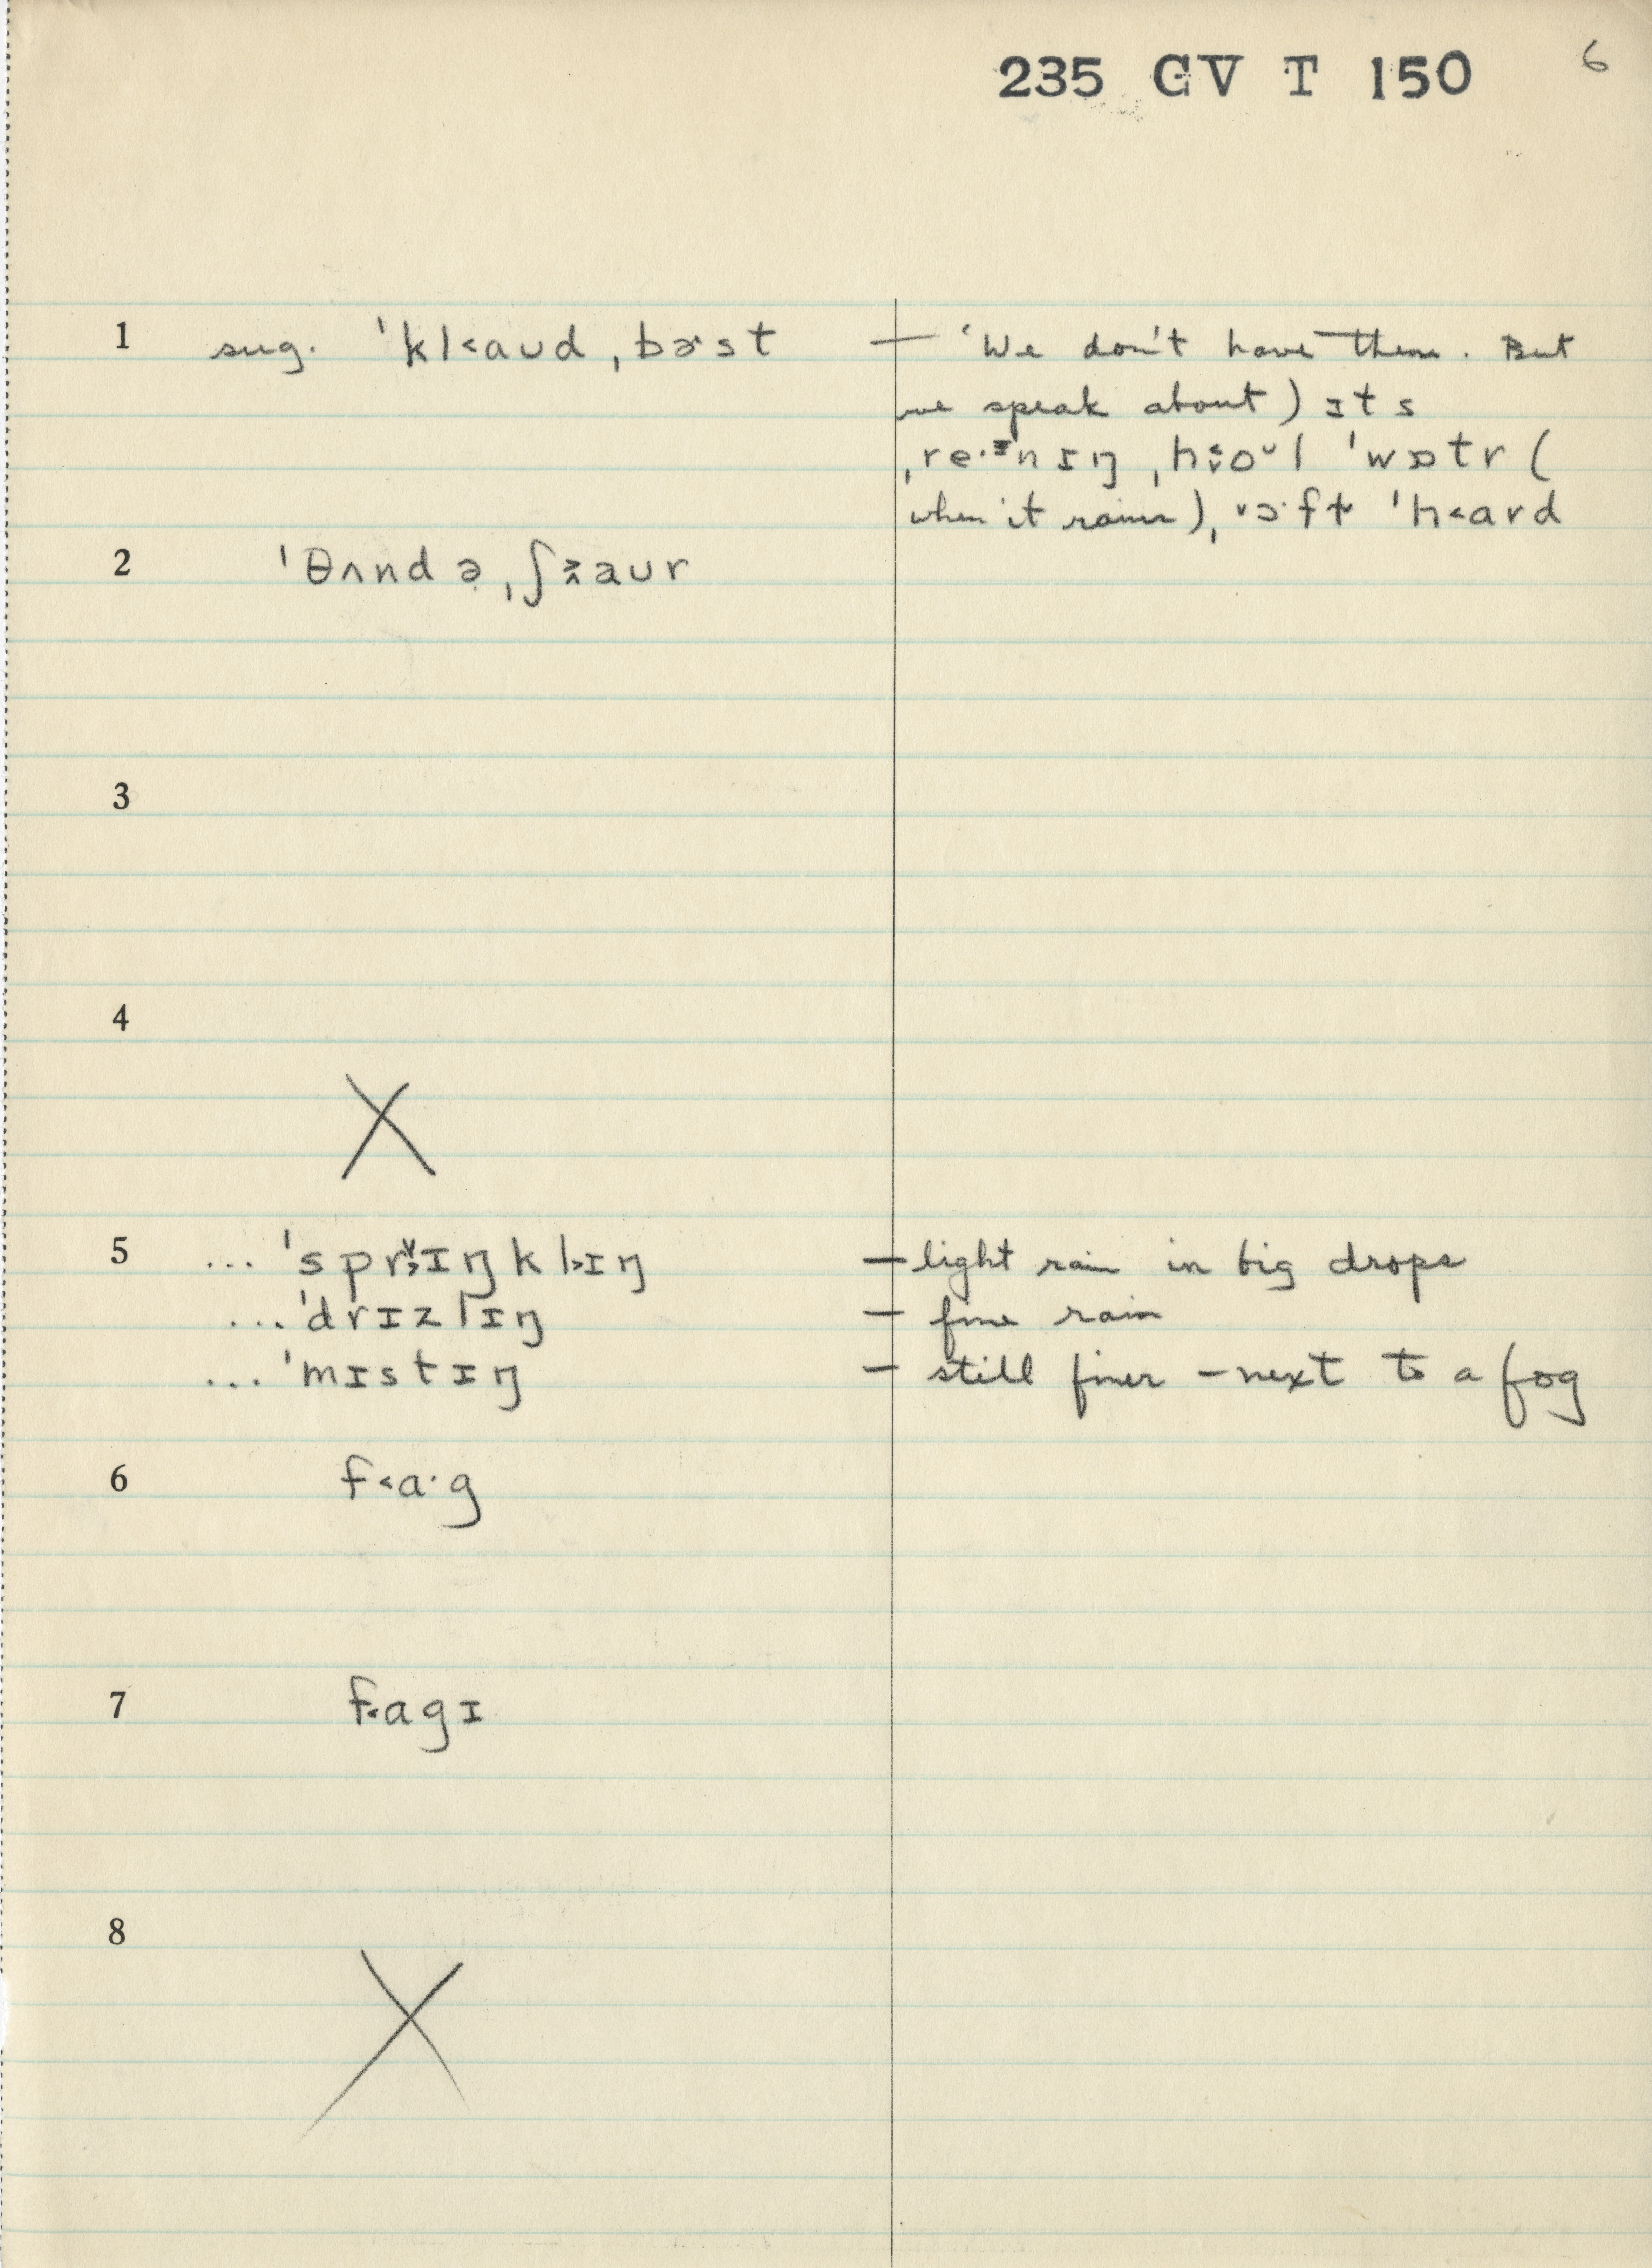 235 GV T 150 6
1 sug. ˈkl˂aʊd ˌbɚst — ‘We don't have them. But
we speak about) ɪts
ˌre·ᶦnɪŋ ˌho̞ᵁl ˈwɒtr (
when it rains), ˌɔ·ft ˈh˂ard
2 ˈθʌndə ˌʃaʊr
3
4
X
5 ... ˈsprɪŋklɪŋ — light rain in big drops
... ˈdrɪzlɪŋ — fine rain
... ˈmɪstɪŋ — still finer – next to a fog
6 f˂a·g
7 f˂agɪ
8
X